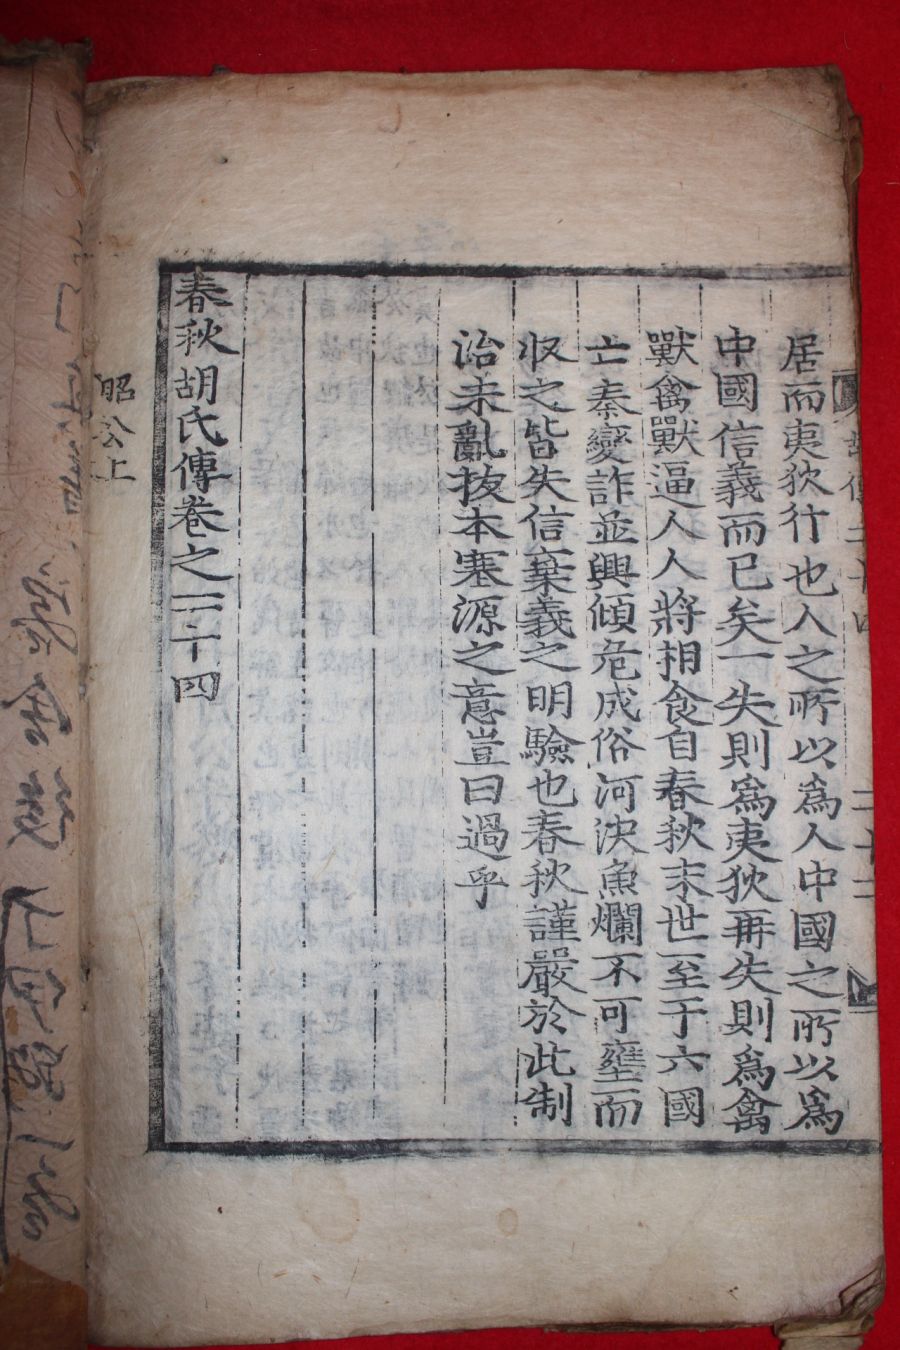 居而夷狄行也人之所以為人中國之所以為
中國信義而已矣一失則為夷狄再失則為禽
獸禽獸逼人人將相食自春秋末世至于六國
亡秦變詐並興傾危成俗河決魚爛不可壅而
収之皆失信棄義之明驗也春秋謹嚴於此制
治未亂拔本塞源之意豈曰過乎
春秋胡氏傳卷之二十四
昭公上